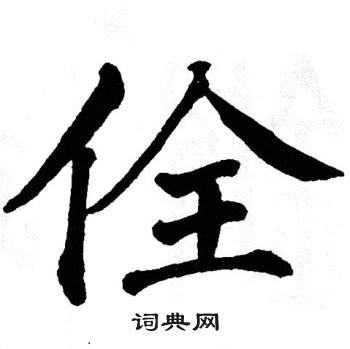 佺
词典网